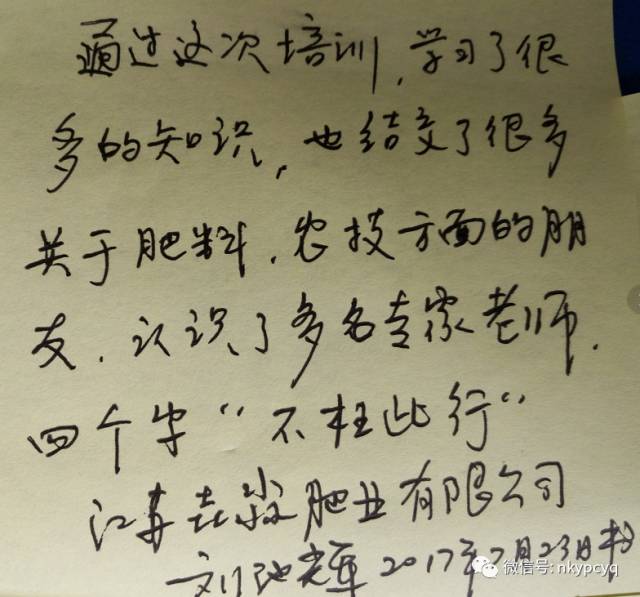 通过这次培训,学习了很
多的知识,也结交了很多
关于肥料,农技方面的朋
友,认识了多名专家老师,
四个字“不枉此行”
江苏垚淼肥业有限公司
刘 辉 2017年7月23日
微信号: nkypcyq